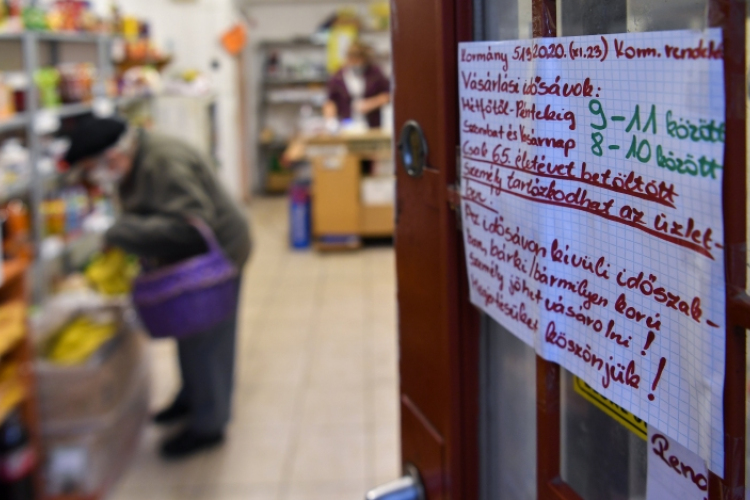 Kormány 519/2020. (XI.23) Korm. rendelet
Vásárlási idősávok:
Hétfőtől-Péntekig 9-11 között
Szombat és Vasárnap 8-10 között
Csak 65. életévet betöltött
személy tartózkodhat az üzlet-
be!
Az idősávon kívüli időszak-
ban, bárki/bármilyen korú
személy jöhet vásárolni!
Megértésüket köszönjük!
Rend